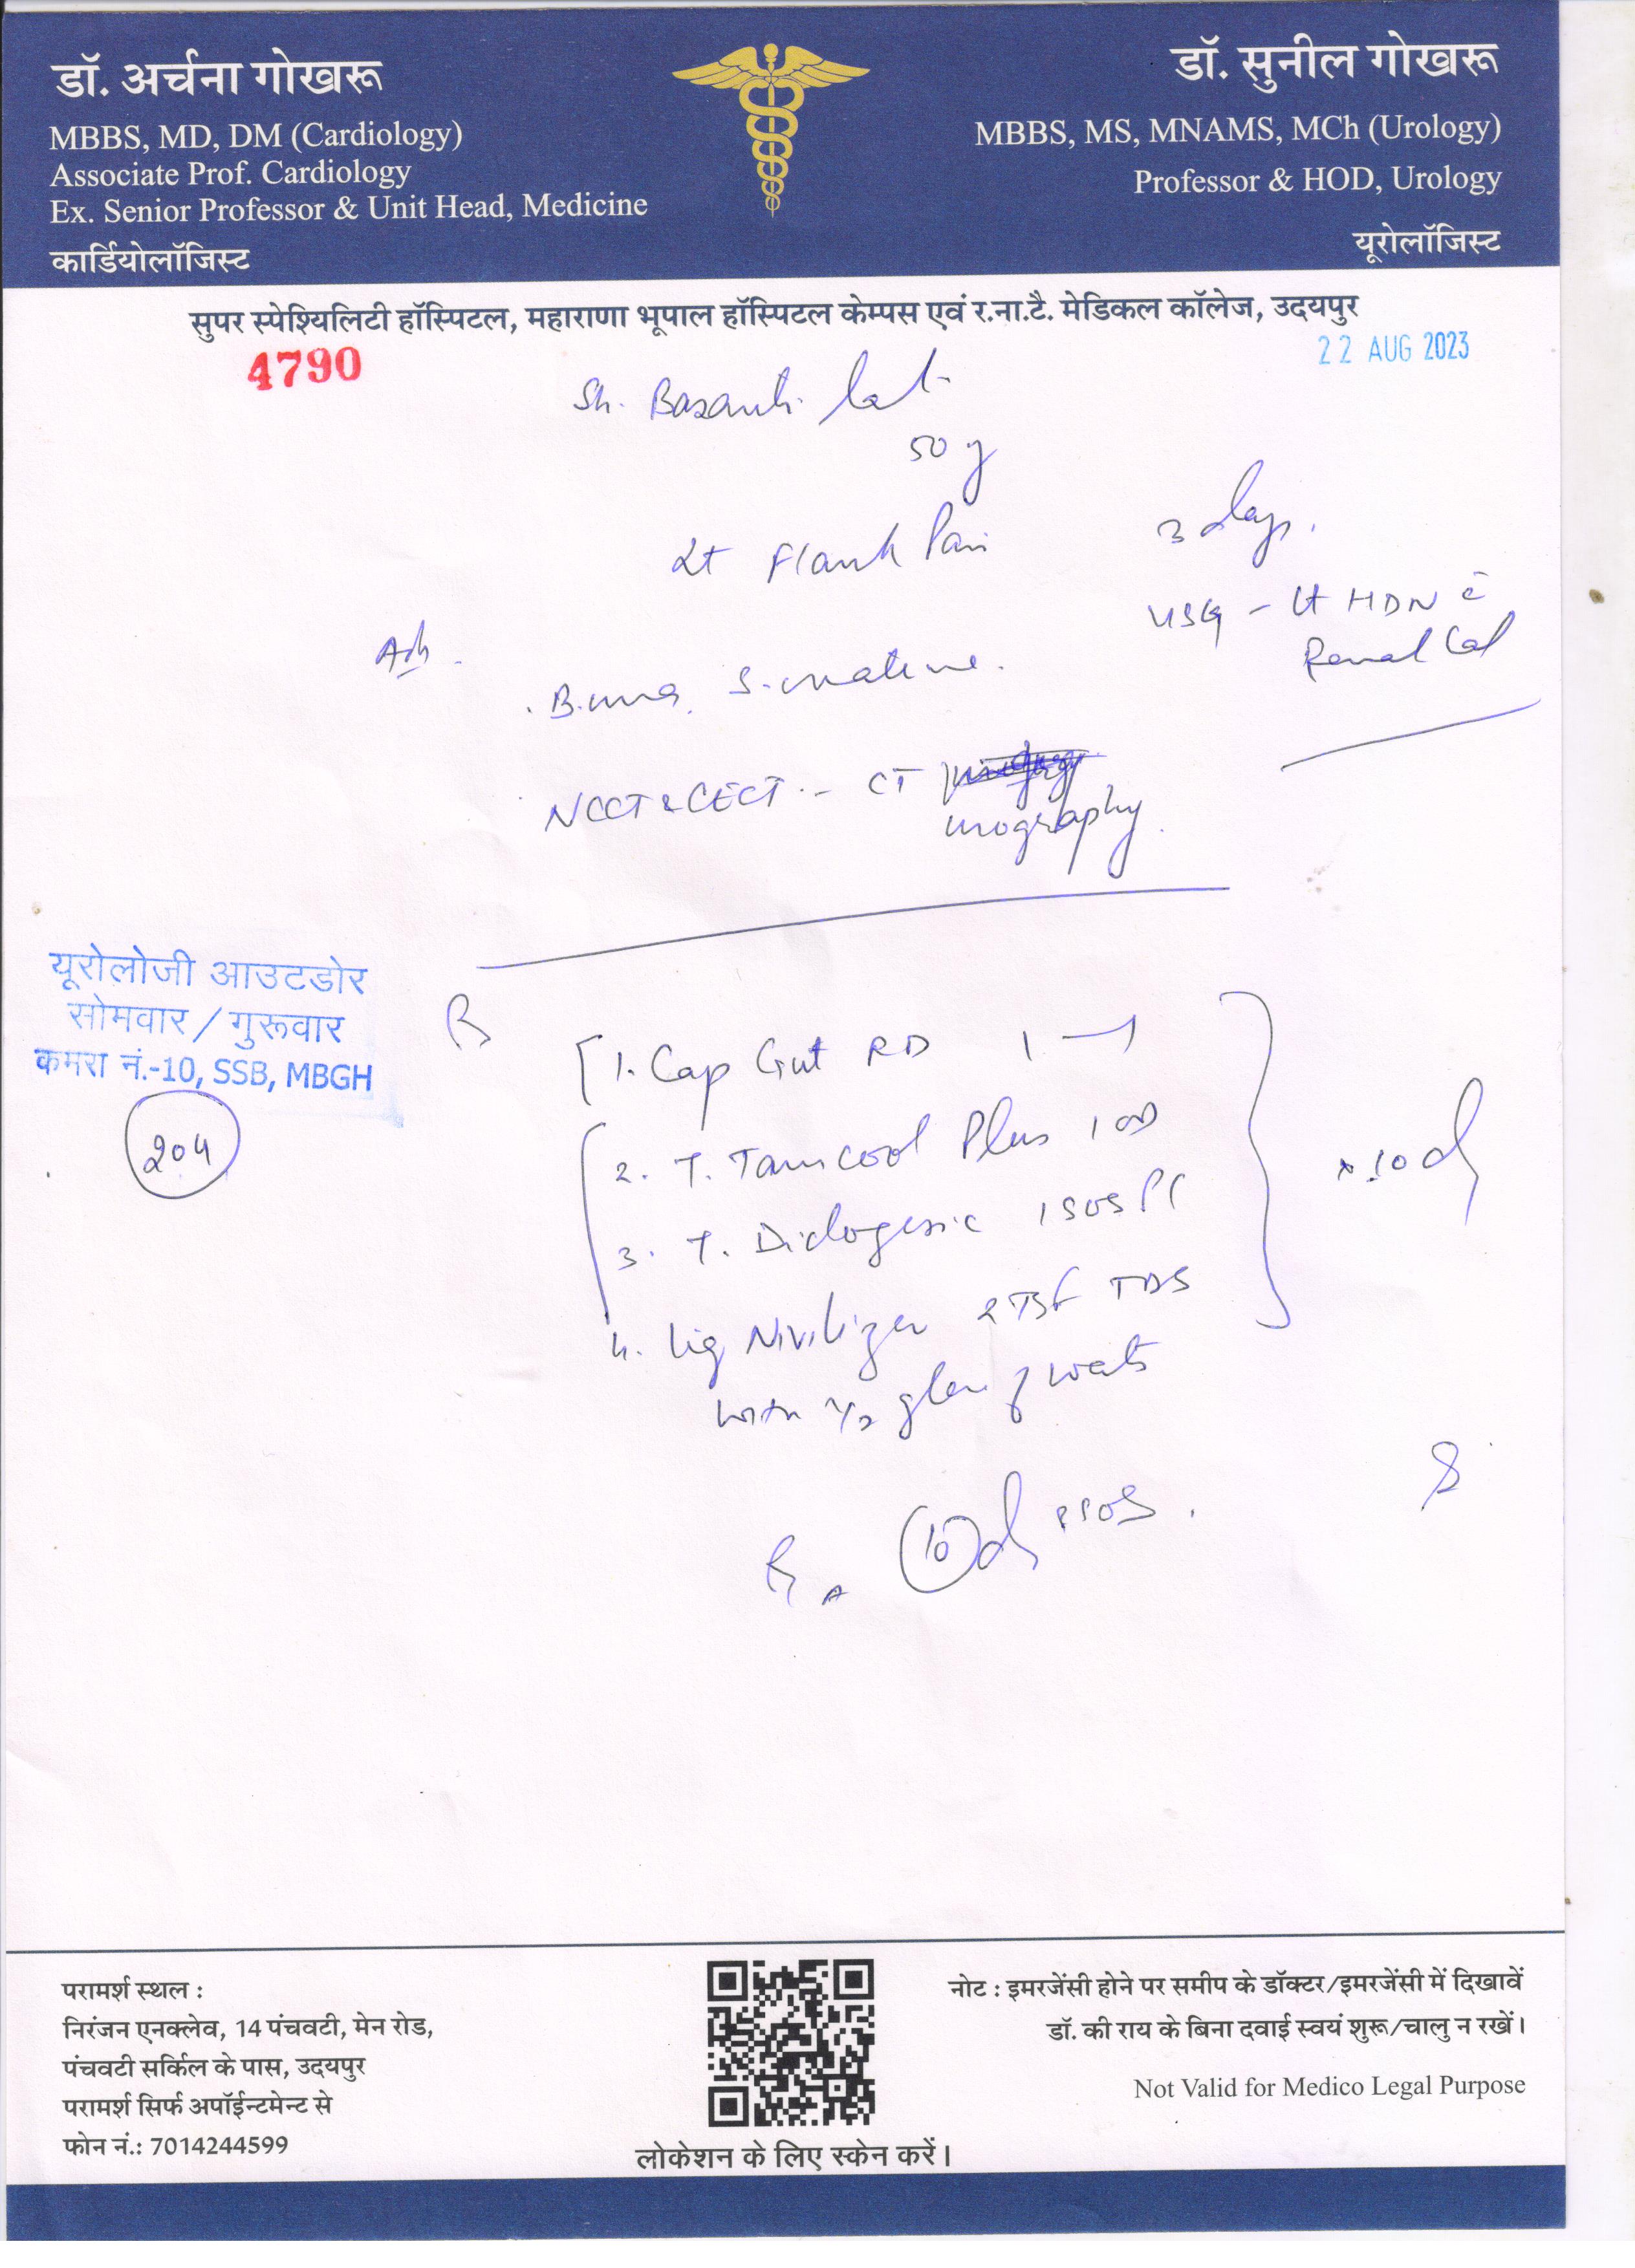 डॉ. अर्चना गोखरू
MBBS, MD, DM (Cardiology)
Associate Prof. Cardiology
Ex. Senior Professor & Unit Head, Medicine
कार्डियोलॉजिस्ट
डॉ. सुनील गोखरू
MBBS, MS, MNAMS, MCh (Urology)
Professor & HOD, Urology
यूरोलॉजिस्ट
सुपर स्पेश्यिलिटी हॉस्पिटल, महाराणा भूपाल हॉस्पिटल केम्पस एवं र.ना.टै. मेडिकल कॉलेज, उदयपुर
4790
22 AUG 2023
Sh. Basanti Lal
50 y
Lt Flank Pain 3 days.
USG - Lt HDN c̄
Renal Cal
Adv
B. urea, S. creatinine.
NCCT & CECT - CT
urography.
यूरोलोजी आउटडोर
सोमवार / गुरूवार
कमरा नं.-10, SSB, MBGH
204
1. Cap Gut RD 1 —
2. T. Tamcool Plus 1 OD
3. T. Diclogesic 1 SOS PC
x 10 d
4. Liq Nivilizer 2 TSF TDS
with 1/2 glass of water
10 d SOS.
परामर्श स्थल :
निरंजन एनक्लेव, 14 पंचवटी, मेन रोड,
पंचवटी सर्किल के पास, उदयपुर
परामर्श सिर्फ अपॉईन्टमेन्ट से
फोन नं.: 7014244599
लोकेशन के लिए स्केन करें।
नोट : इमरजेंसी होने पर समीप के डॉक्टर/इमरजेंसी में दिखावें
डॉ. की राय के बिना दवाई स्वयं शुरू/चालु न रखें।
Not Valid for Medico Legal Purpose